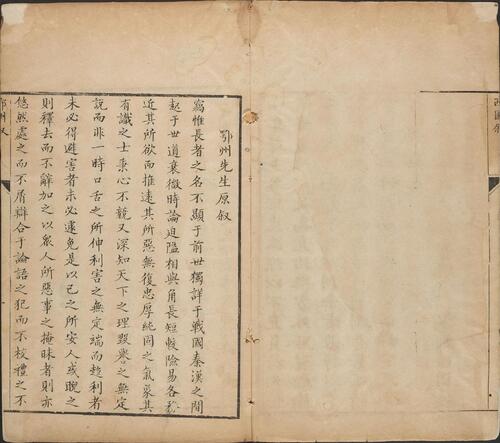 鄂州先生原叙
竊惟長者之名不顯于前世獨詳于戰國秦漢之間
起于世道衰微時論迫隘相與角長短較險易各私
近其所欲而推遠其所惡無復忠厚純同之氣象其
有識之士秉心不競又深知天下之理毀譽之無定
說而非一時口舌之所伸利害之無定端而趍利者
未必得避害者未必遽免是以己之所安人或睨之
則釋去而不辭加之以眾人所惡事之掩昧者則亦
悠然處之而不屑辯合于論語之犯而不校禮之不
鄂州叙